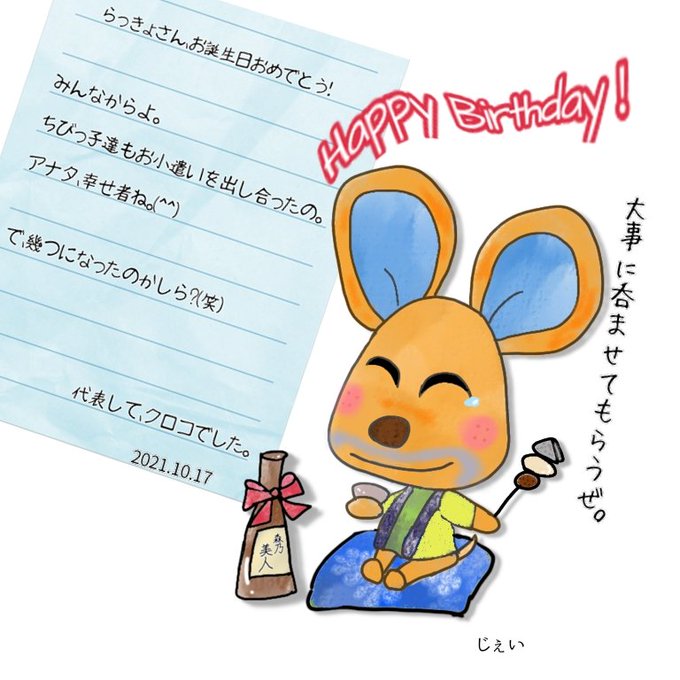 らっきょさん、お誕生日おめでとう!
みんなからよ。
ちびっ子達もお小遣いを出し合ったの。
アナタ、幸せ者ね。(^^)
で、幾つになったのかしら?(笑)
代表して、クロコでした。
2021.10.17
HAPPY Birthday!
大事に呑ませてもらうぜ。
森乃
美人
じぇい